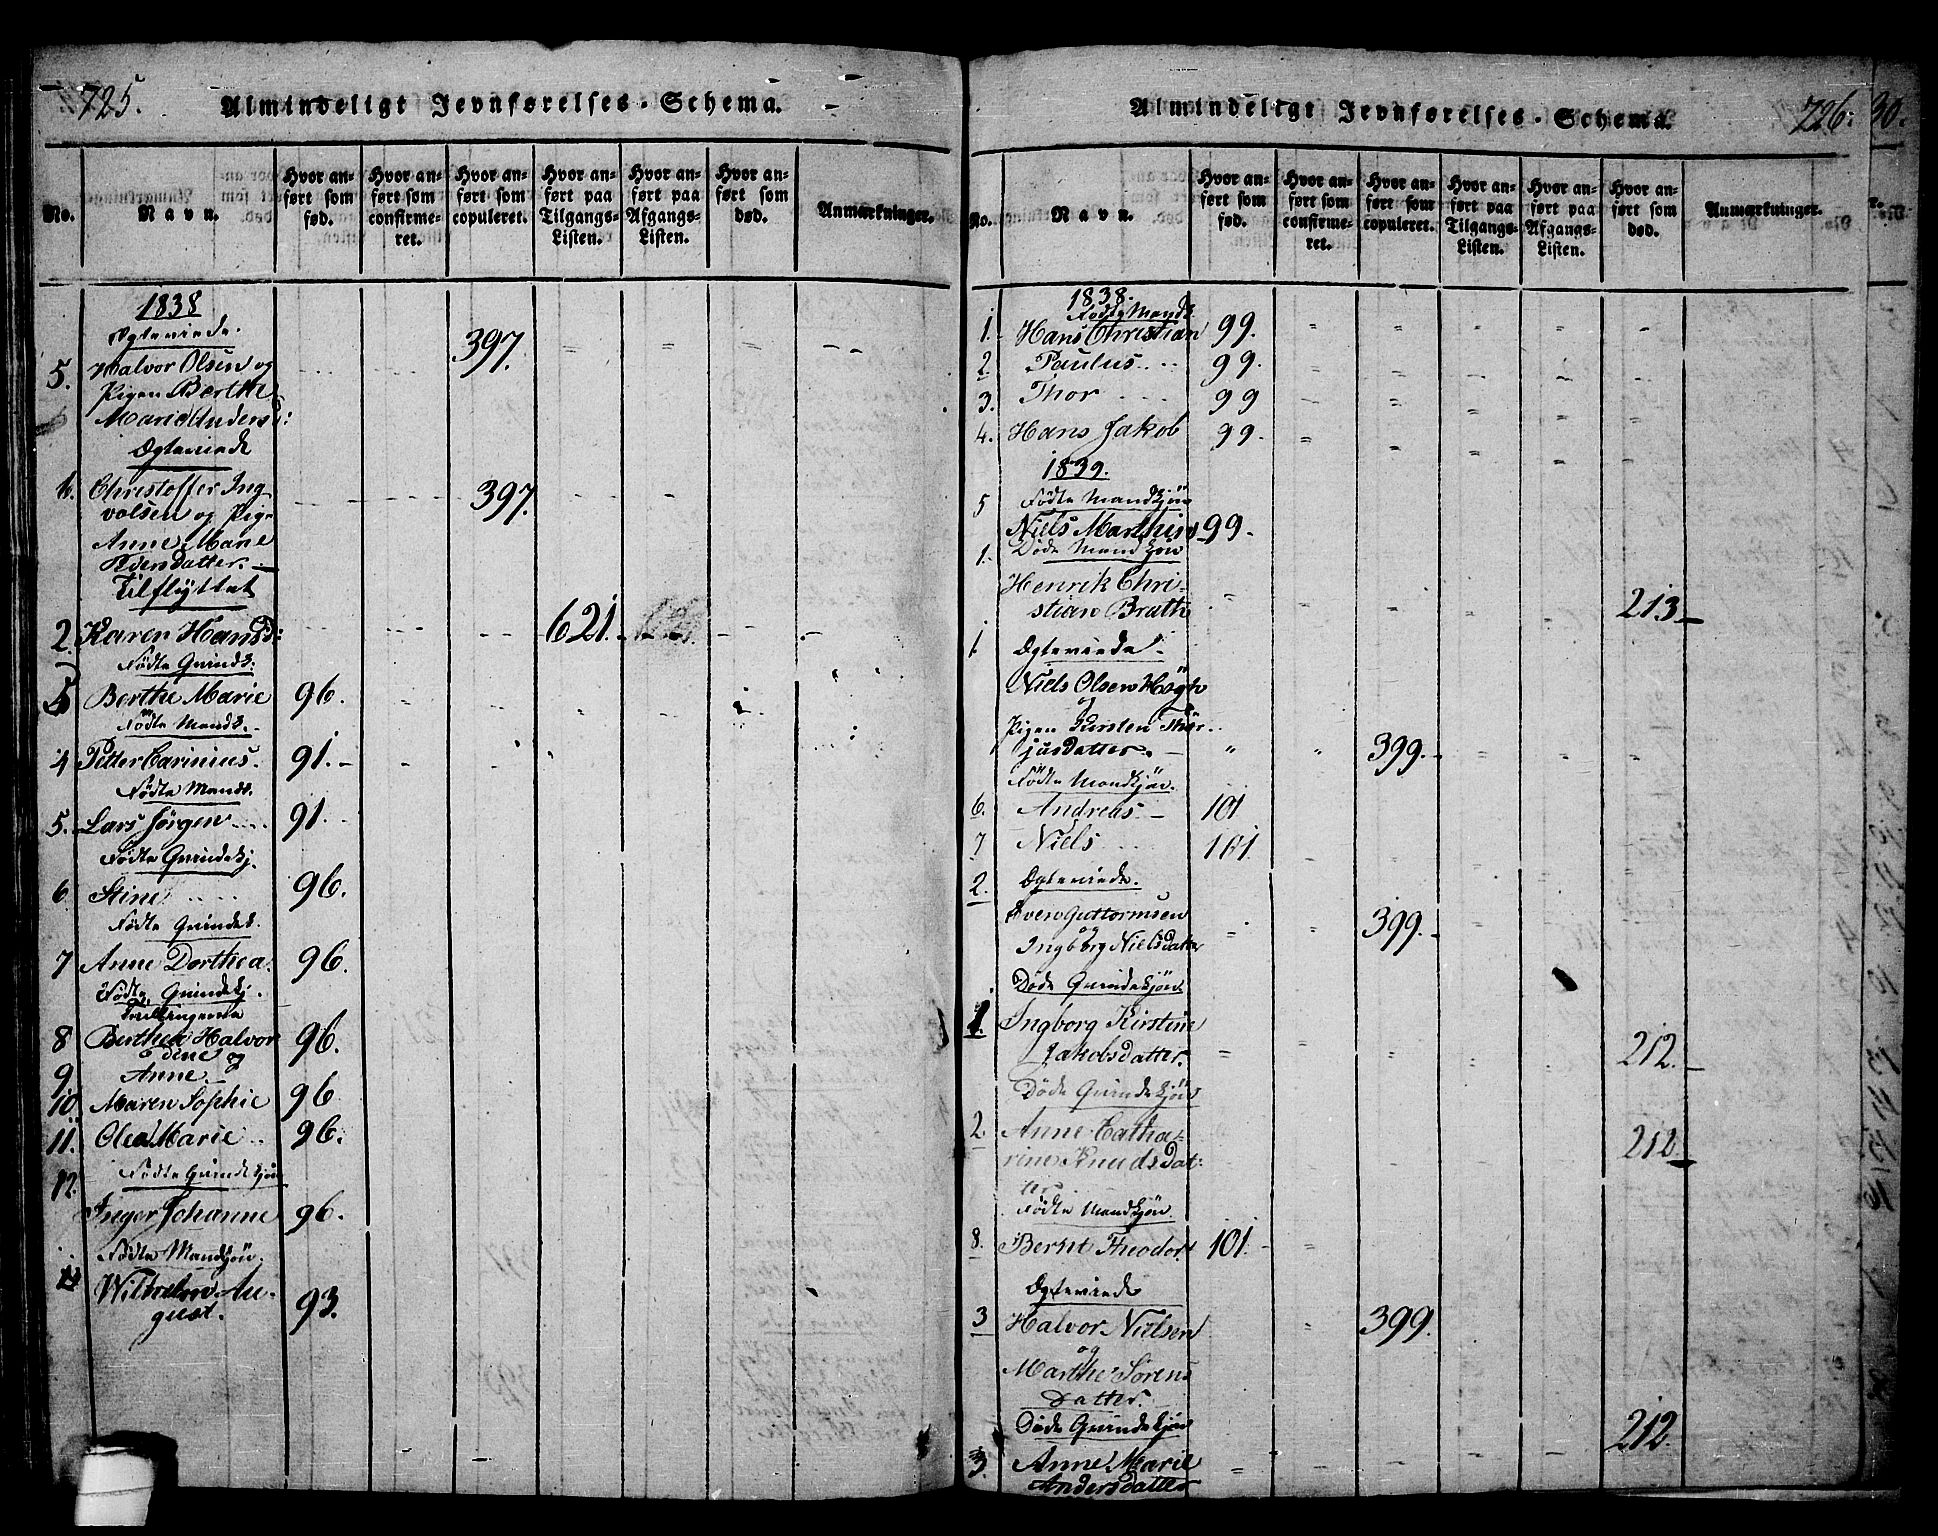 725.
Almindeligt Jevnførelses-Schema.
No.
Navn.
Hvor anført som fød.
Hvor anført som confirmeret.
Hvor anført som copuleret.
Hvor anført paa Tilgangs-Listen.
Hvor anført paa Afgangs-Listen.
Hvor anført som død.
Anmærkninger.
1838
Ægteviede.
5. Halvor Olsen og 397.
Pigen Berthe
Marie Anders D:
Ægteviede
6. Christoffer Ing 397.
volsen og Pig
Anne Marie
datter.
Tilflyttet
2. Karen Hansd: 621.
Fødte Qvindk:
5 Berthe Marie 96.
Fødte Mandk.
4 Petter Carinius. 91.
Fødte Mandk.
5. Lars Jørgen 91.
Fødte Qvindekj.
6 Stine 96.
Fødte Qvindek.
7 Anne Dorthea. 96.
Fødte Qvindekj.
Tvillingerne
8 Berthea Halvor 96.
dine og
9. Anne
10 Maren Sophie 96
11. Olea Marie 96.
Fødte Qvindekjøn
12. Inger Johanne 96.
Fødte Mandkjøn.
Wilhelm Au- 93.
gust.
Almindeligt Jevnførelses-Schema.
726.
No.
Navn.
Hvor anført som fød.
Hvor anført som confirmeret.
Hvor anført som copuleret.
Hvor anført paa Tilgangs-Listen.
Hvor anført paa Afgangs-Listen.
Hvor anført som død.
Anmærkninger.
1838.
Fødte Mandk
1. Hans Christian 99.
2. Paulus 99.
3. Thor 99
4. Hans Jakob 99.
1839.
5 Fødte Mandkjøn
Niels Marthin 99.
1. Døde Mandkjøn
Henrik Chri-
stian Brath 213
1. Ægteviede
Niels Olsen Høgh
og
Pigen Kirsten Thor-
jusdatter. 399.
Fødte Mandkjøn.
6. Andreas 101
7 Niels 101
2. Ægteviede.
Sven Guttormsen 399.
og
Ingborg Nielsdatter
Døde Qvindekjøn
1. Ingborg Kirstine
Jakobsdatter. 212.
Døde Qvindekjøn
2. Anne Catha- 212
rine Knudsdat-
ter
Fødte Mandkjøn
8. Bernt Theodor 101.
Ægteviede
3 Halvor Nielsen 399.
og
Marthe Sørens
datter.
Døde Qvindekjøn 212.
3. Anne Marie
Andersdatter